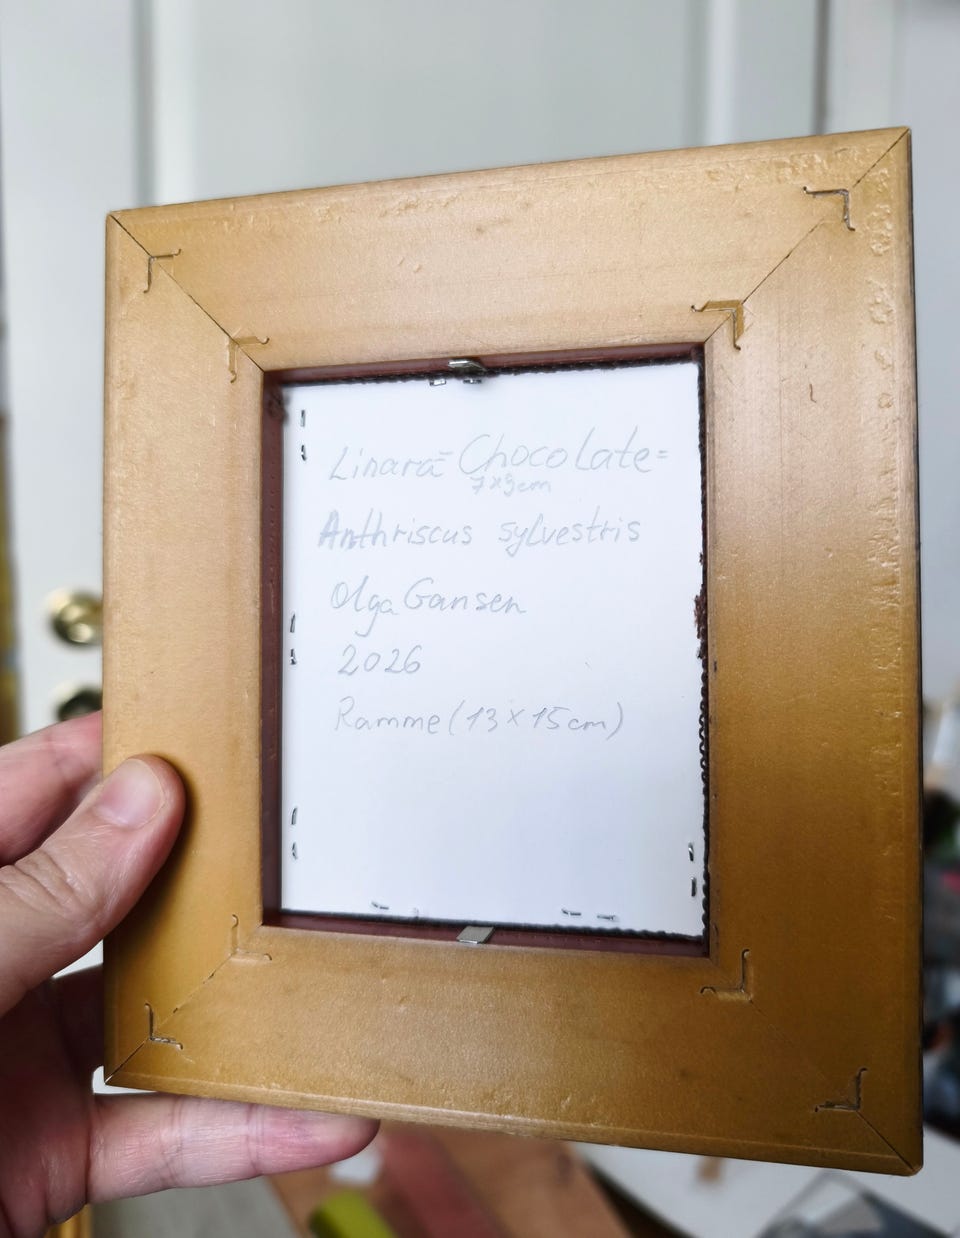 Linara = Chocolate =
7x9cm
Anthriscus sylvestris
Olga Gansen
2026
Ramme (13 x 15cm)